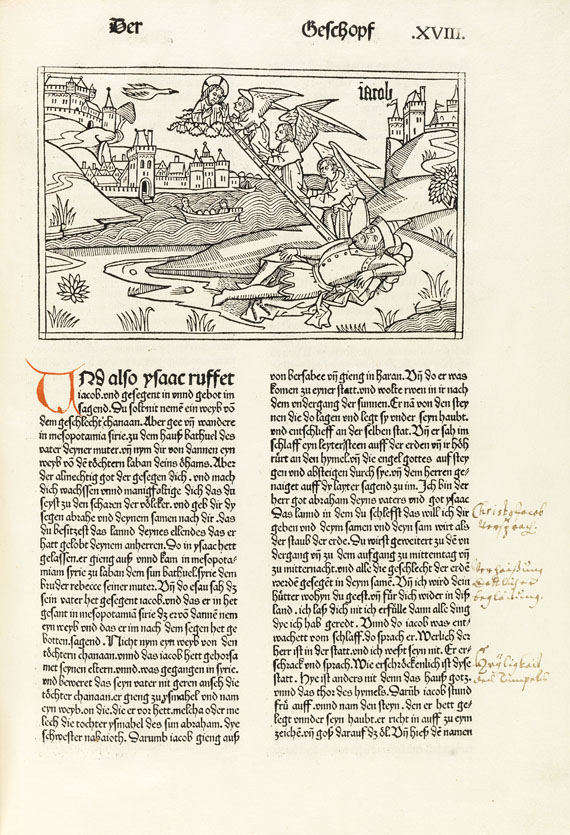 Der Geschopf .XVIII.
iacob
UNd also ysaac ruffet
iacob. vnd gesegent in vnnd gebot im
sagend. Du solt nit nemē ein weyb vō
dem geschlecht chanaan. Aber gee vn̄ wandere
in mesopotamia sirie. zu dem hauß bathuel des
vater deyner muter. vn̄ nym dir von dannen eyn
weyb vō den töchtern laban deins öhams. Aber
der almechtig got der gesegen dich. vnd mach
dich wachssen vnnd manigfeltige dich das du
seyst zu den scharen der völcker. vnd geb dir dy
segen abrahe vnd deynem samen nach dir. das
du besitzest das lannd deynes ellendes das er
hatt gelobt deynem anherren. Do in ysaac hett
gelassen. er gieng auß vnnd kam in mesopota-
miam syrie zu laban dem sun bathuel syrie dem
bruder rebecce seiner muter. Vn̄ do esau sah dz
sein vater het gesegent iacob. vnd das er in het
gesant in mesopotamiā sirie dz er vō danne nem
eyn weyb vnd das er im nach dem segen het ge
botten. sagend. Nicht nym eyn weyb von den
töchtern chanaan. vnnd das iacob hett gehorsa
met seynen eltern. vnnd. was gegangen in syrie.
vnd beweret das seyn vater nit geren ansech die
töchter chanaan. er gieng zu ysmahel vnd nam
eyn weyb. on die. die er vor hett. melcha oder me
lech die tochter ysmahel des sun abraham. dye
schwester nabaioth. Darumb iacob gieng auß
von bersabee vn̄ gieng in haran. Vn̄ do er was
komen zu eyner statt. vnd wolte rwen in ir nach
dem vndergang der sunnen. Er nā von den stey
nen die do lagen vnd legt sy vnder seyn haubt.
vnd entschlieff an der selben stat. Vn̄ er sah im
schlaff eyn leyter steen auff der erden vn̄ ir höh
rürt an den hymel. vn̄ die engel gottes auf stey
gen vnd absteigen durch sye. vn̄ dem herren ge-
naiget auff dy layter sagend zu im. Ich bin der
herr got abraham deyns vaters vnd got ysaac
Das lannd in dem du schleffst das will ich dir
geben vnd deym samen vnd deyn sam wirt als
der staub der erde. Du wirst geweitert zu dē vn
dergang vn̄ zu dem aufgang zu mittemtag vn̄
zu mitternacht. vnd alle die geschlecht der erdē
werdē gesegēt in deym samē. Vn̄ ich wird dein
hütter wohyn du geest. vn̄ für dich wider in diß
land. ich laß dich nit ich erfülle dann alle ding
dye ich hab geredt. Vnnd do iacob was ent-
wachett vom schlaff. do sprach er. Werlich der
herr ist in der statt. vnd ich weyst seyn nit. Er er-
schrack vnd sprach. Wie erschröckenlich ist dyse
statt. Hye ist anders nit denn das hauß gotz.
vnnd das thor des hymels. Darūb iacob stund
frü auff. vnnd nam den steyn. den er hett ge-
legt vnnder seyn haubet. er richt in auff zu eym
zeichē. vn̄ goß darauf dz öl. Vn̄ hieß dē namen